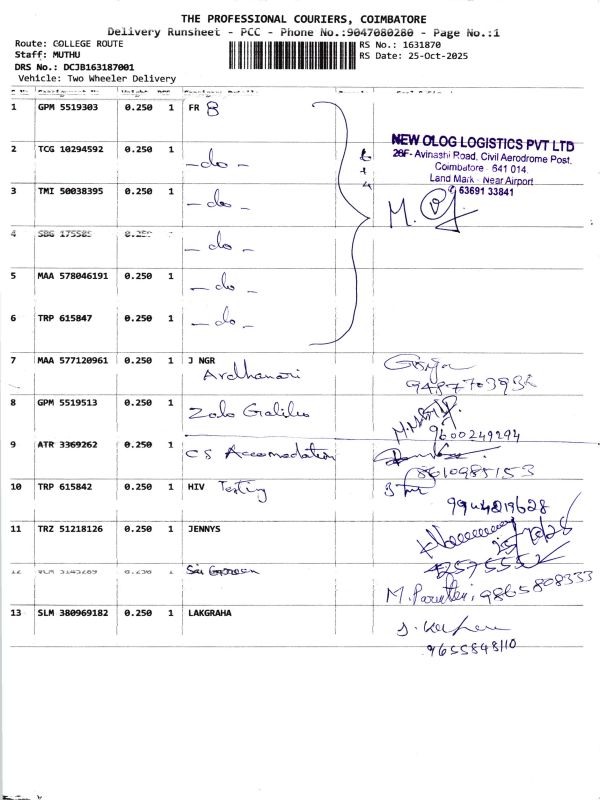 THE PROFESSIONAL COURIERS, COIMBATORE
Delivery Runsheet - PCC - Phone No.:9047080280 - Page No.:1
Route: COLLEGE ROUTE
RS No.: 1631870
Staff: MUTHU
RS Date: 25-Oct-2025
DRS No.: DCJB163187001
Vehicle: Two Wheeler Delivery
1 GPM 5519303 0.250 1 FR 8
NEW OLOG LOGISTICS PVT LTD
28F- Avinashi Road, Civil Aerodrome Post,
Coimbatore - 641 014.
Land Mark - Near Airport
63691 33841
2 TCG 10294592 0.250 1 - do -
3 TMI 50038395 0.250 1 - do -
4 SBG 0.250 - do -
5 MAA 578046191 0.250 1 - do -
6 TRP 615847 0.250 1 - do -
7 MAA 577120961 0.250 1 J NGR
Ardhanari
8 GPM 5519513 0.250 1 Zolo Galileo
9600249294
9 ATR 3369262 0.250 1 CS Accomodation
8610985153
10 TRP 615842 0.250 1 HIV Testing
9944219628
11 TRZ 51218126 0.250 1 JENNYS
12 0.250 1 Sai Green
9865808333
13 SLM 380969182 0.250 1 LAKGRAHA
9655848110